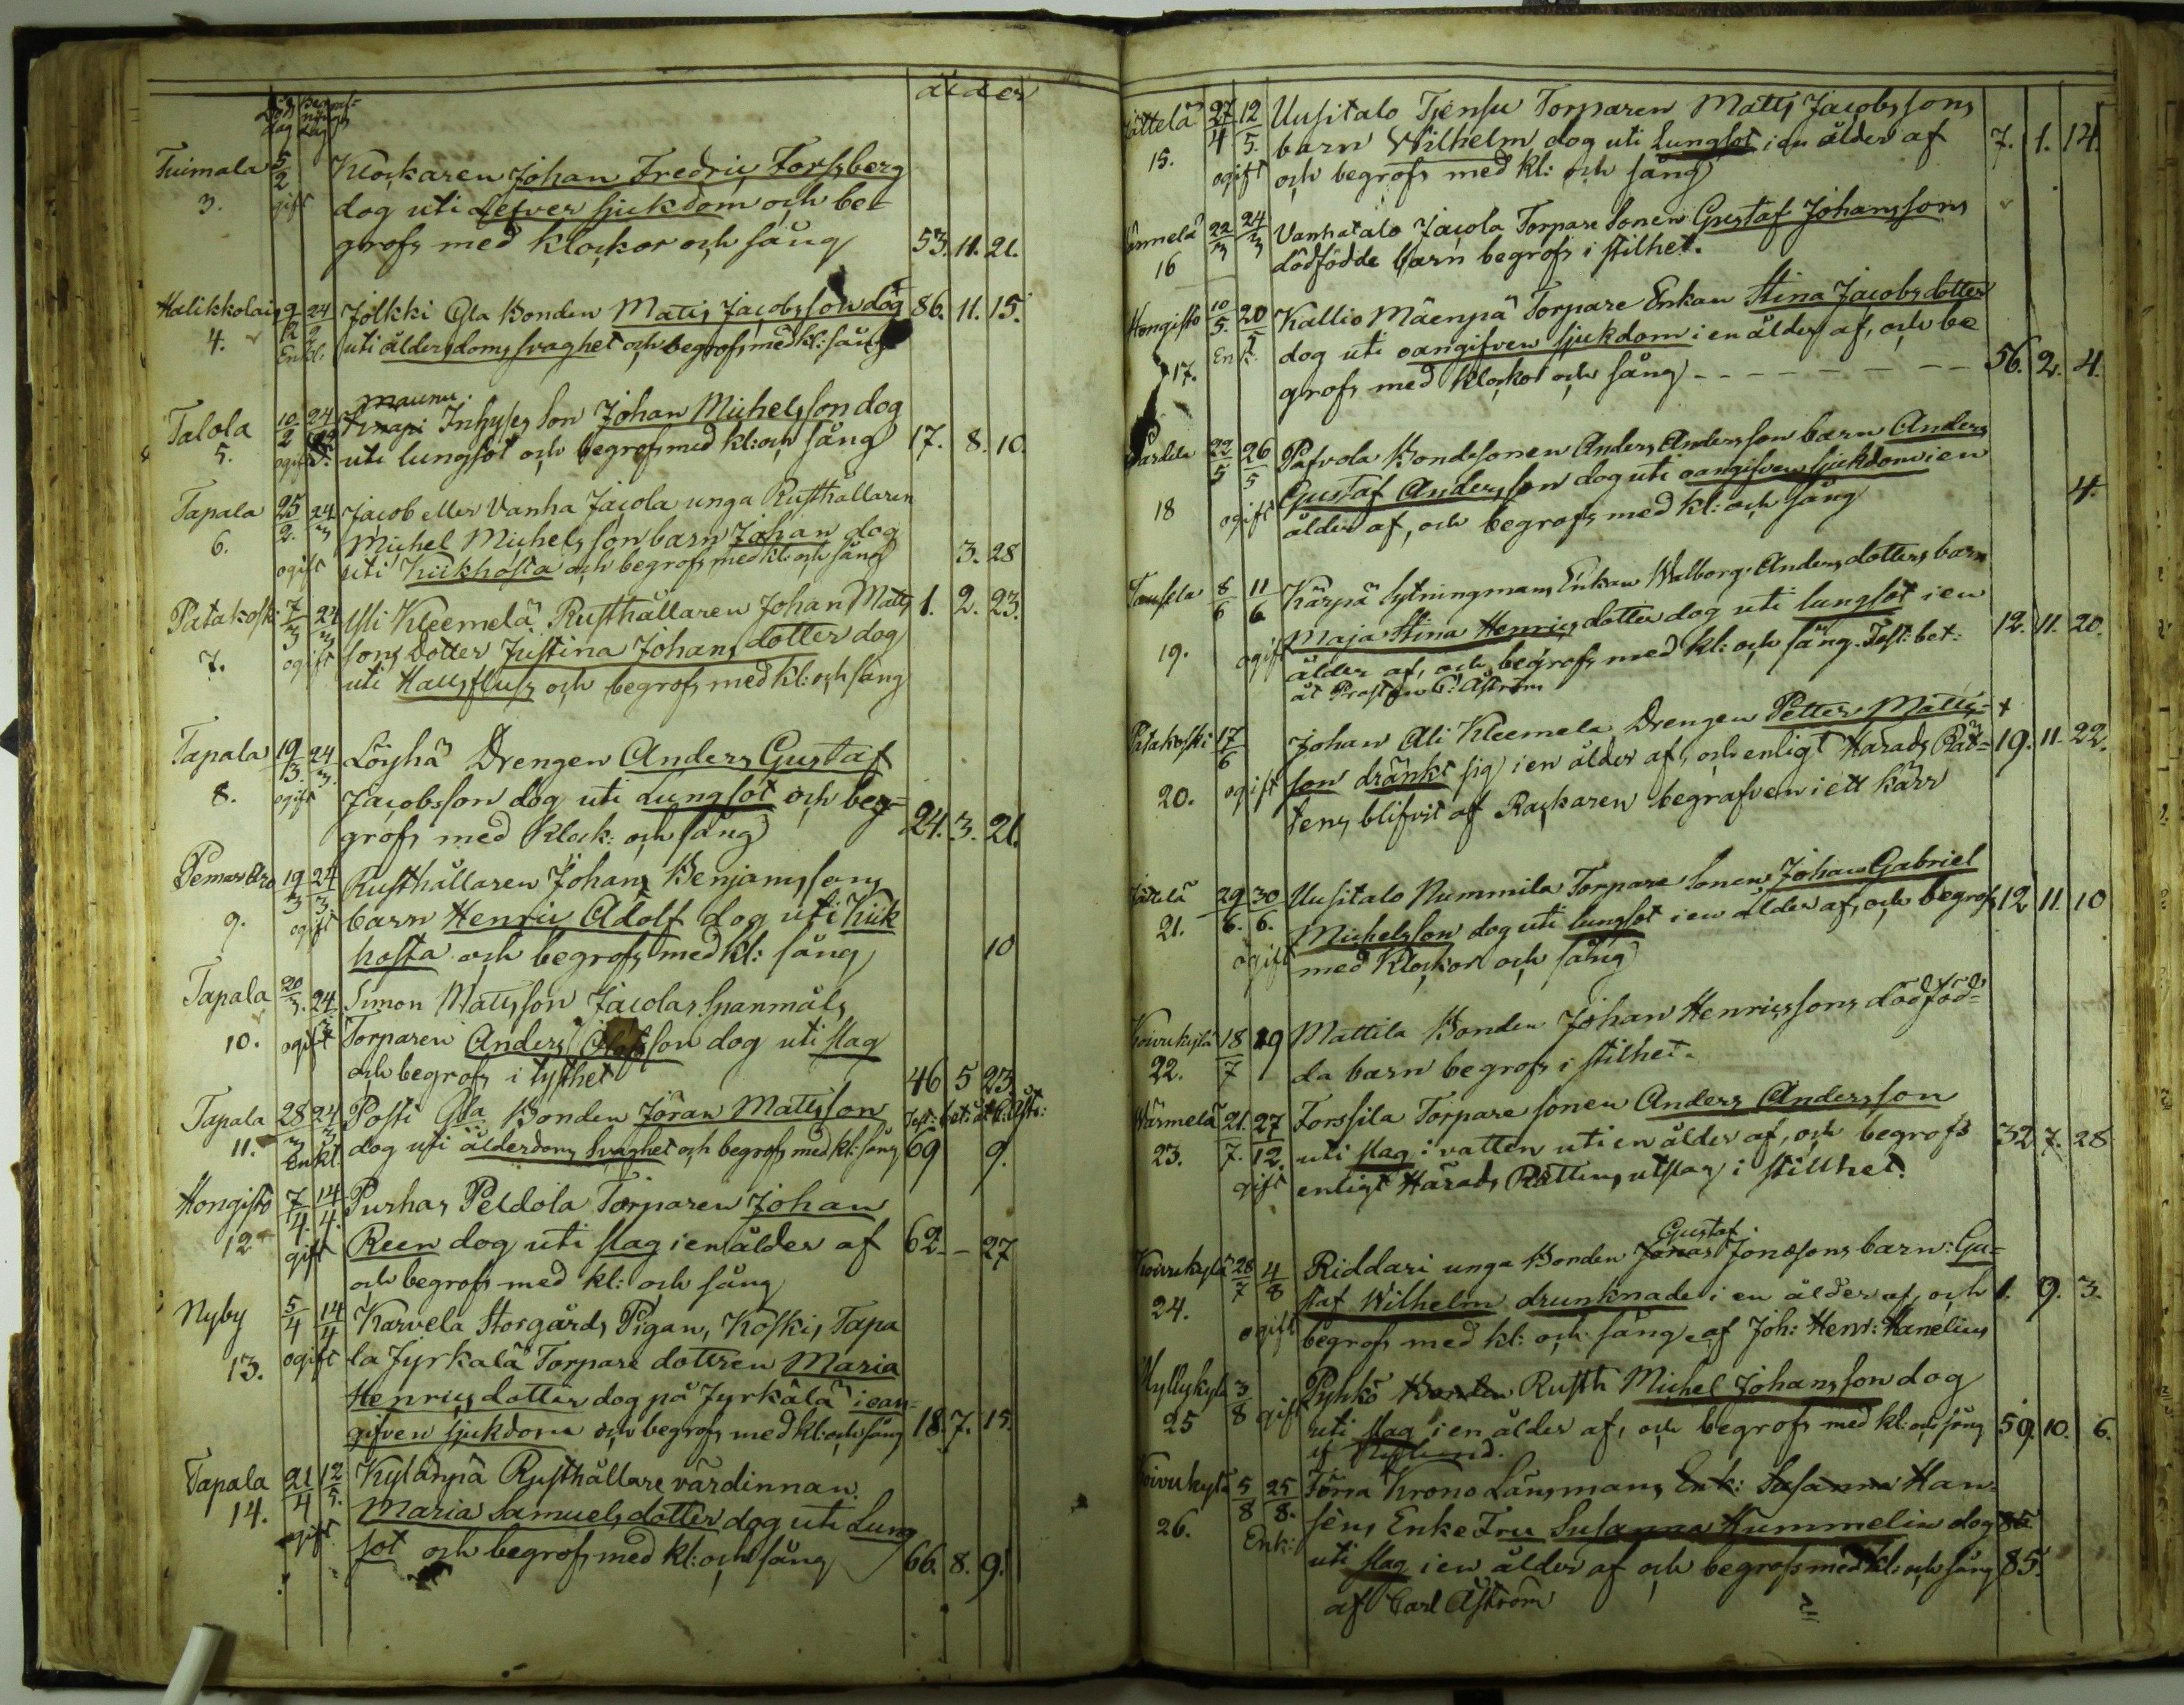 Döds dag Begrafnings dag ålder
Tuimala 5/2 Klockaren Johan Fredric Forssberg
3. gift dog uti Lefver sjukdom och be-
grofs med klockor och sång 53. 11. 21.
Halikkolais 9/2 24/2 Jölkki Gla Bonden Matts Jacobsson dog 86. 11. 15.
4. Enkl. uti ålderdoms svaghet och begrofs med kl: sång
Maunu
Talola 10/2 24/2 Inhyses Son Johan Michelsson dog
5. ogift uti lungsot och begrofs med kl: och sång 17. 8. 10.
Tapala 25/2 24/3 Jacob eller Vanha Jacola unga Rusthållaren
6. Michel Michelsson barn Johan dog
ogift uti Kikhosta och begrofs med kl: och sång 3. 28
Patakoski 7/3 24/3 Yli Kleemelä Rusthållaren Johan Matts 1. 2. 23.
7. ogift sons Dotter Justina Johans dotter dog
uti Halsfluss och begrofs med kl: och sång
Tapala 19/3 24/3 Löyhä Drengen Anders Gustaf
8. ogift Jacobsson dog uti Lungsot och beg-
grofs med Klock: och sång 24. 3. 21.
Pemar Aro 19/3 24/3 Rusthållaren Johans Benjamssons
9. ogift barn Henric Adolf dog uti Kik
hosta och begrofs med kl: sång 10
Tapala 20/3 24 Simon Mattsson Jacolas Spanmåls
10. ogift Torparen Anders Olofsson dog uti slag
och begrofs i tysthet 46 5 23
Tapala 28/3 24/3 Posti Gla Bonden Jöran Mattsson Test: bet: åt C: Åstr:
11. Enkl. dog uti ålderdoms Svaghet och begrofs med kl: sång 69 9.
Hongisto 7/4 14/4 Purhas Peldola Torparen Johan
12 gift Reen dog uti slag i en ålder af 62 - 27
och begrofs med kl: och sång
Nyby 5/4 14/4 Karvela Storgårds Pigan, Koski, Tapa
13. ogift la Jyrkälä Torpare dottren Maria
Henrics dotter dog på Jyrkälä i oan-
gifven sjukdom och begrofs med kl: och sång 18. 7. 15.
Tapala 21/4 12/5 Kylänpä Rusthållare värdinnan
14. gift Maria Samuels dotter dog uti Lung
sot och begrofs med kl: och sång 66. 8. 9.
Jättelä 27/4 12/5 Uusitalo Tjensu Torparen Matts Jacobssons
15. barn Wilhelm dog uti Lungsot i en ålder af 7. 1. 14.
ogift och begrofs med kl: och sång
22/3 24/3 Vanhatalo Jacola Torpare Sonen Gustaf Johanssons
16 dödfödde barn begrofs i stilhet.
Hongisto 10/5 20/5 Kallio Mäenpä Torpare Enkan Stina Jacobs dotter
17. Enk. dog uti oangifven sjukdom i en ålder af, och be
grofs med klockor och sång - - - - - - - 56. 2. 4.
22/5 26/5 Pafvola Bondesonen Anders Andersson barn Anders
18 ogift Gustaf Andersson dog uti oangifven sjukdom i en
ålder af, och begrofs med kl: och sång 4.
8/6 11/6 Kärpä Sytningmans Enkan Walborg Andersdotters barn
19. ogift Maja Stina Henrics dotter dog uti lungsot i en
ålder af, och begrofs med kl: och sång. Test: bet: 12. 11. 20.
åt Prosten C: Åström
Patakoski 17/6 Johan Ali Kleemela Drengen Petter Matts- +
20. ogift son dränkt sig i en ålder af, och enligt Harads Rät- 19. 11. 22.
tens blifvit af Rackaren begrafven i ett kärr
Jätelä 29/6. 30/6. Uusitalo Nummila Torpare Sonen Johan Gabriel
21. Michelsson dog uti lungsot i en ålder af, och begrofs 12 11. 10
ogift med klockor och sång
Koivukylä 18/7 19 Mattila Bonden Johan Henricssons dödföd-
22. da barn begrofs i stilhet.
Wärmelä 21./7. 27/12. Forssila Torpare sonen Anders Andersson
23. uti slag i vatten uti en ålder af, och begrofs 32 7. 28
gift enligt Härads Rättens utslag i stillhet.
Gustaf
Koivukylä 28/7 4/8 Riddari unga Bonden Jonas Jonæsons barn: Gu-
24. staf Wilhelm drunknade i en ålder af, och 1. 9. 3.
ogift begrofs med kl: och sång af Joh: Henr: Hanelius
Myllykylä 3/8 Pyhkö Bonden Rusth Michel Johansson dog
25 gift uti slag i en ålder af, och begrofs med kl: och sång 59. 10. 6.
Koivukylä 5/8 25/8. Törra Krono Länsmans Enk: Susanna Han-
26. Enk: sens Enke Fru Susanna Hummelin dog 85
uti slag i en ålder af och begrofs med kl: och sång 85.
af Carl Åström